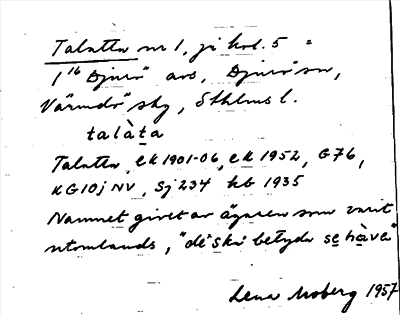 Talatta nr 1, jr kol. 5 =
1¹⁶ Djurö ars, Djurö sn,
Värmdö skg, Sthlms l.
talàta
Talatta, EK 1901-06, EK 1952, G76,
KG10j NV, Sj 234 hb 1935
Namnet givet av ägaren som varit
utomlands, "dè ska betyda se hàve"
Lena Moberg 1957